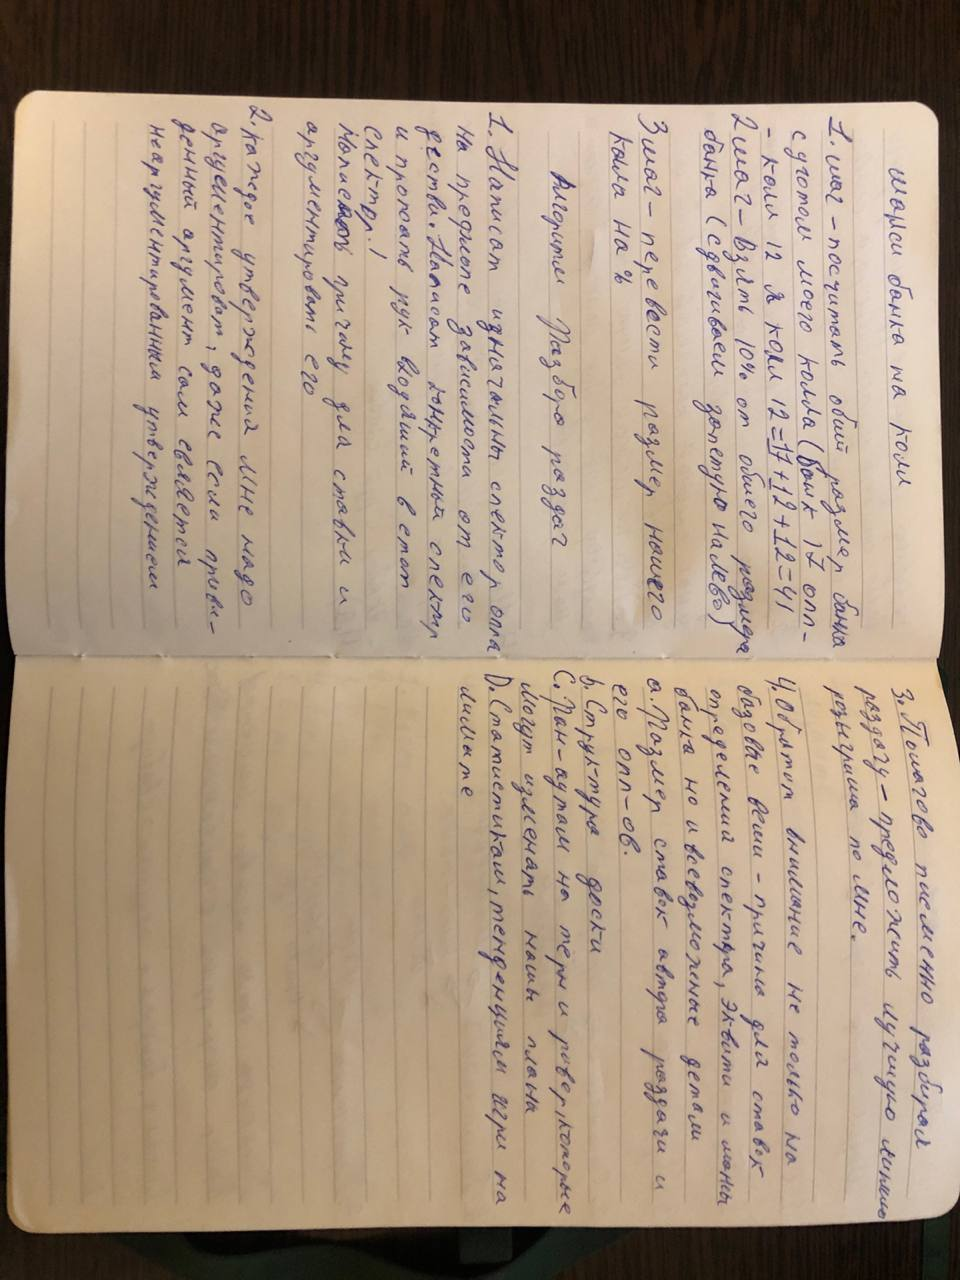 шансы банка на колл
1. шаг - посчитать обший размер банка
с учотом моего колла (банк 17 опп-
- колл 12 я колл 12 = 17 + 12 + 12 = 41
2 шаг - взять 10% от обшего размера
банка (сдвигаем запетую налево)
3 шаг - перевести размер нашего
колла на %
Алгоритм Разбора раздач
1. Написат изначальны спектор оппа
на префлопе зависимости от его
дестви. Написат конкретный спектр
и прогоать рук входяший в етот
спектр!
Написать причину для ставки и
аргументировать его
2. каждое утверждений мне надо
аргументироват, даже если приви-
денный аргумент сам евляется
неаргументированным утверждением
3. Пошагово писменно разбирая
раздачу - предложить лучшую линию
розыгриша по мне.
4. Обратит внимание не только на
базовые веши - причина для ставок
определений спектра, эквити и шансы
банка но и всевозможеные детали
a. Размер ставок автора раздачи и
его опп-ов.
b. Структура доски
C. Ран-аутам на терн и ривер, которые
могут изменать нашы плана
D. Статистикам, тенденциям игры на
лимите